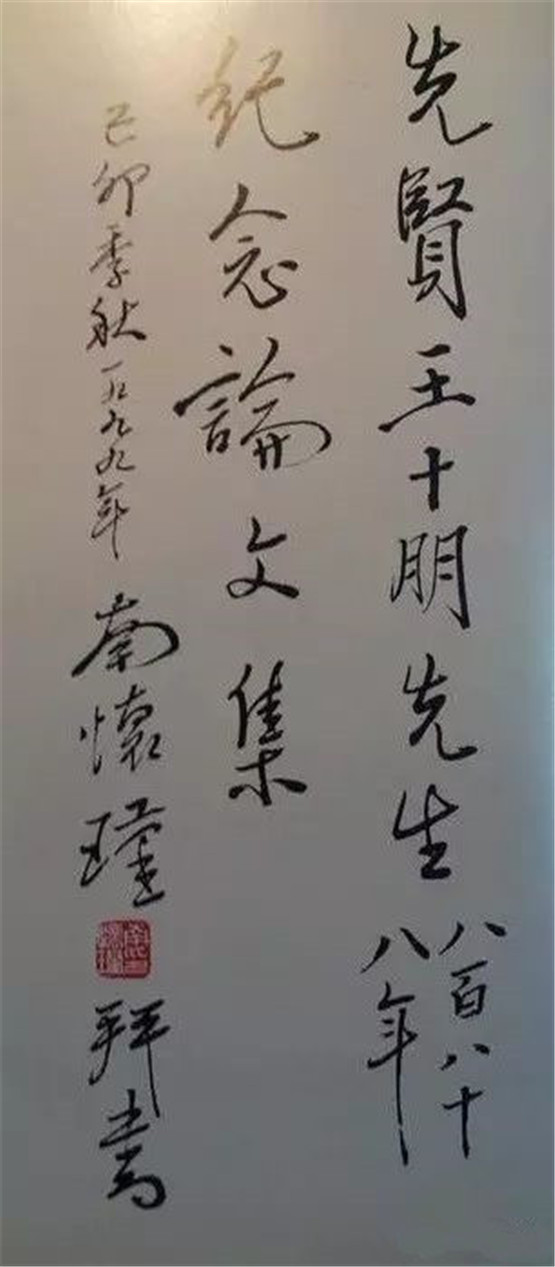 先賢王十朋先生
八百八十
八年
紀念論文集
己卯季秋一九九九年 南懷瑾 拜書